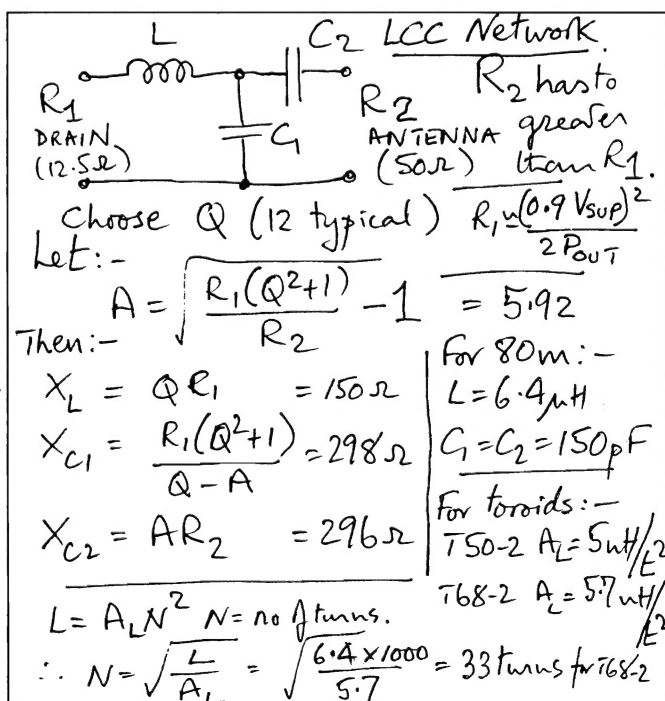 L C2 LCC Network.
R2 has to
R1 C1 R2 greater
DRAIN ANTENNA
(12.5Ω) (50Ω) than R1.
Choose Q (12 typical) R1 ≃ (0.9 VSUP)² / 2 POUT
Let:-
A = √(R1(Q²+1) / R2 - 1) = 5.92
Then:-
XL = QR1 = 150Ω
XC1 = R1(Q²+1) / (Q - A) = 298Ω
XC2 = AR2 = 296Ω
For 80m:-
L = 6.4µH
C1 = C2 = 150pF
For toroids:-
T50-2 AL = 5nH/t²
T68-2 AL = 5.7nH/t²
L = AL N² N = no of turns.
∴ N = √(L / AL) = √(6.4 × 1000 / 5.7) = 33 turns for T68-2